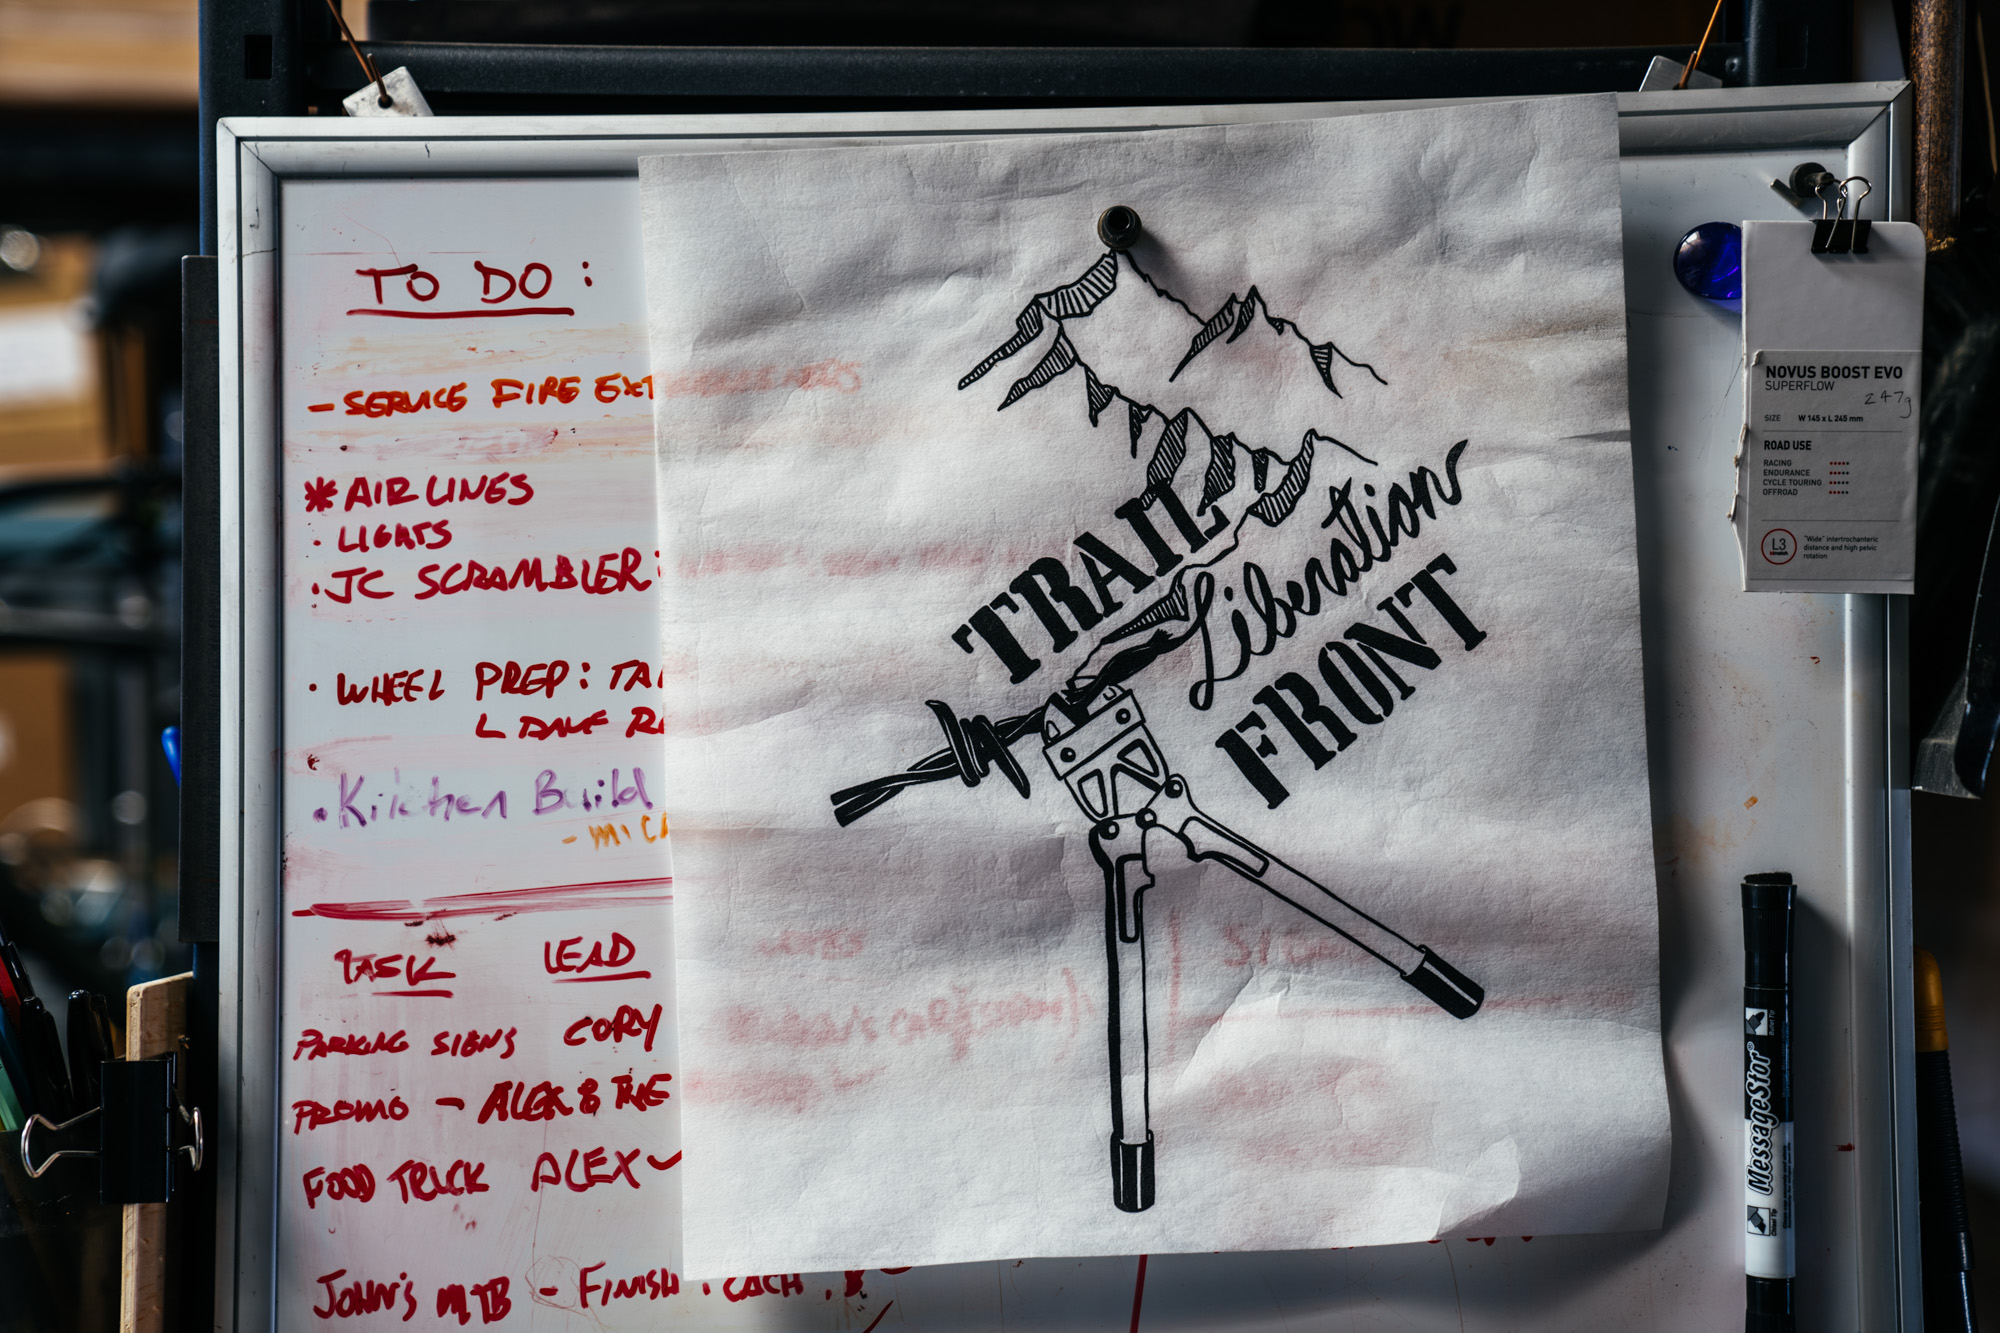 TO DO:
- SERVICE FIRE EXT
* AIR LINES
· LIGHTS
· JC SCRAMBLER:
· WHEEL PREP: TA
L DAVE R
· Kitchen Build
- MICA
TASK LEAD
PARKING SIGNS CORY
PROMO - ALEX & THE
FOOD TRUCK ALEX ✓
JOHN'S MTB - FINISH
TRAIL
Liberation
FRONT
NOVUS BOOST EVO
SUPERFLOW
247g
SIZE W 145 x L 245 mm
ROAD USE
RACING •••••
ENDURANCE •••••
CYCLE TOURING •••••
OFFROAD •••••
L3
"Wide" intertrochanteric
distance and high pelvic
rotation
MessageStor®
Bullet Tip
Chisel Tip